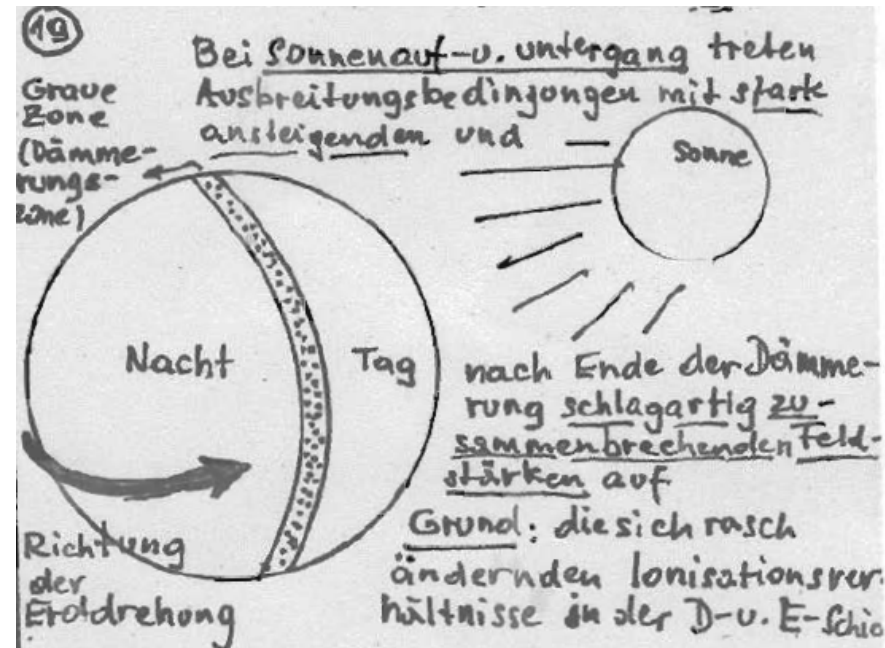 19
Bei Sonnenauf-u. untergang treten
Ausbreitungsbedingungen mit stark
ansteigenden und
Graue
Zone
(Dämme-
rungs-
zone)
Sonne
Nacht
Tag
nach Ende der Dämme-
rung schlagartig zu-
sammenbrechenden Feld-
stärken auf
Grund: die sich rasch
ändernden Ionisationsver-
hältnisse in der D-u. E-Schic
Richtung
der
Erddrehung